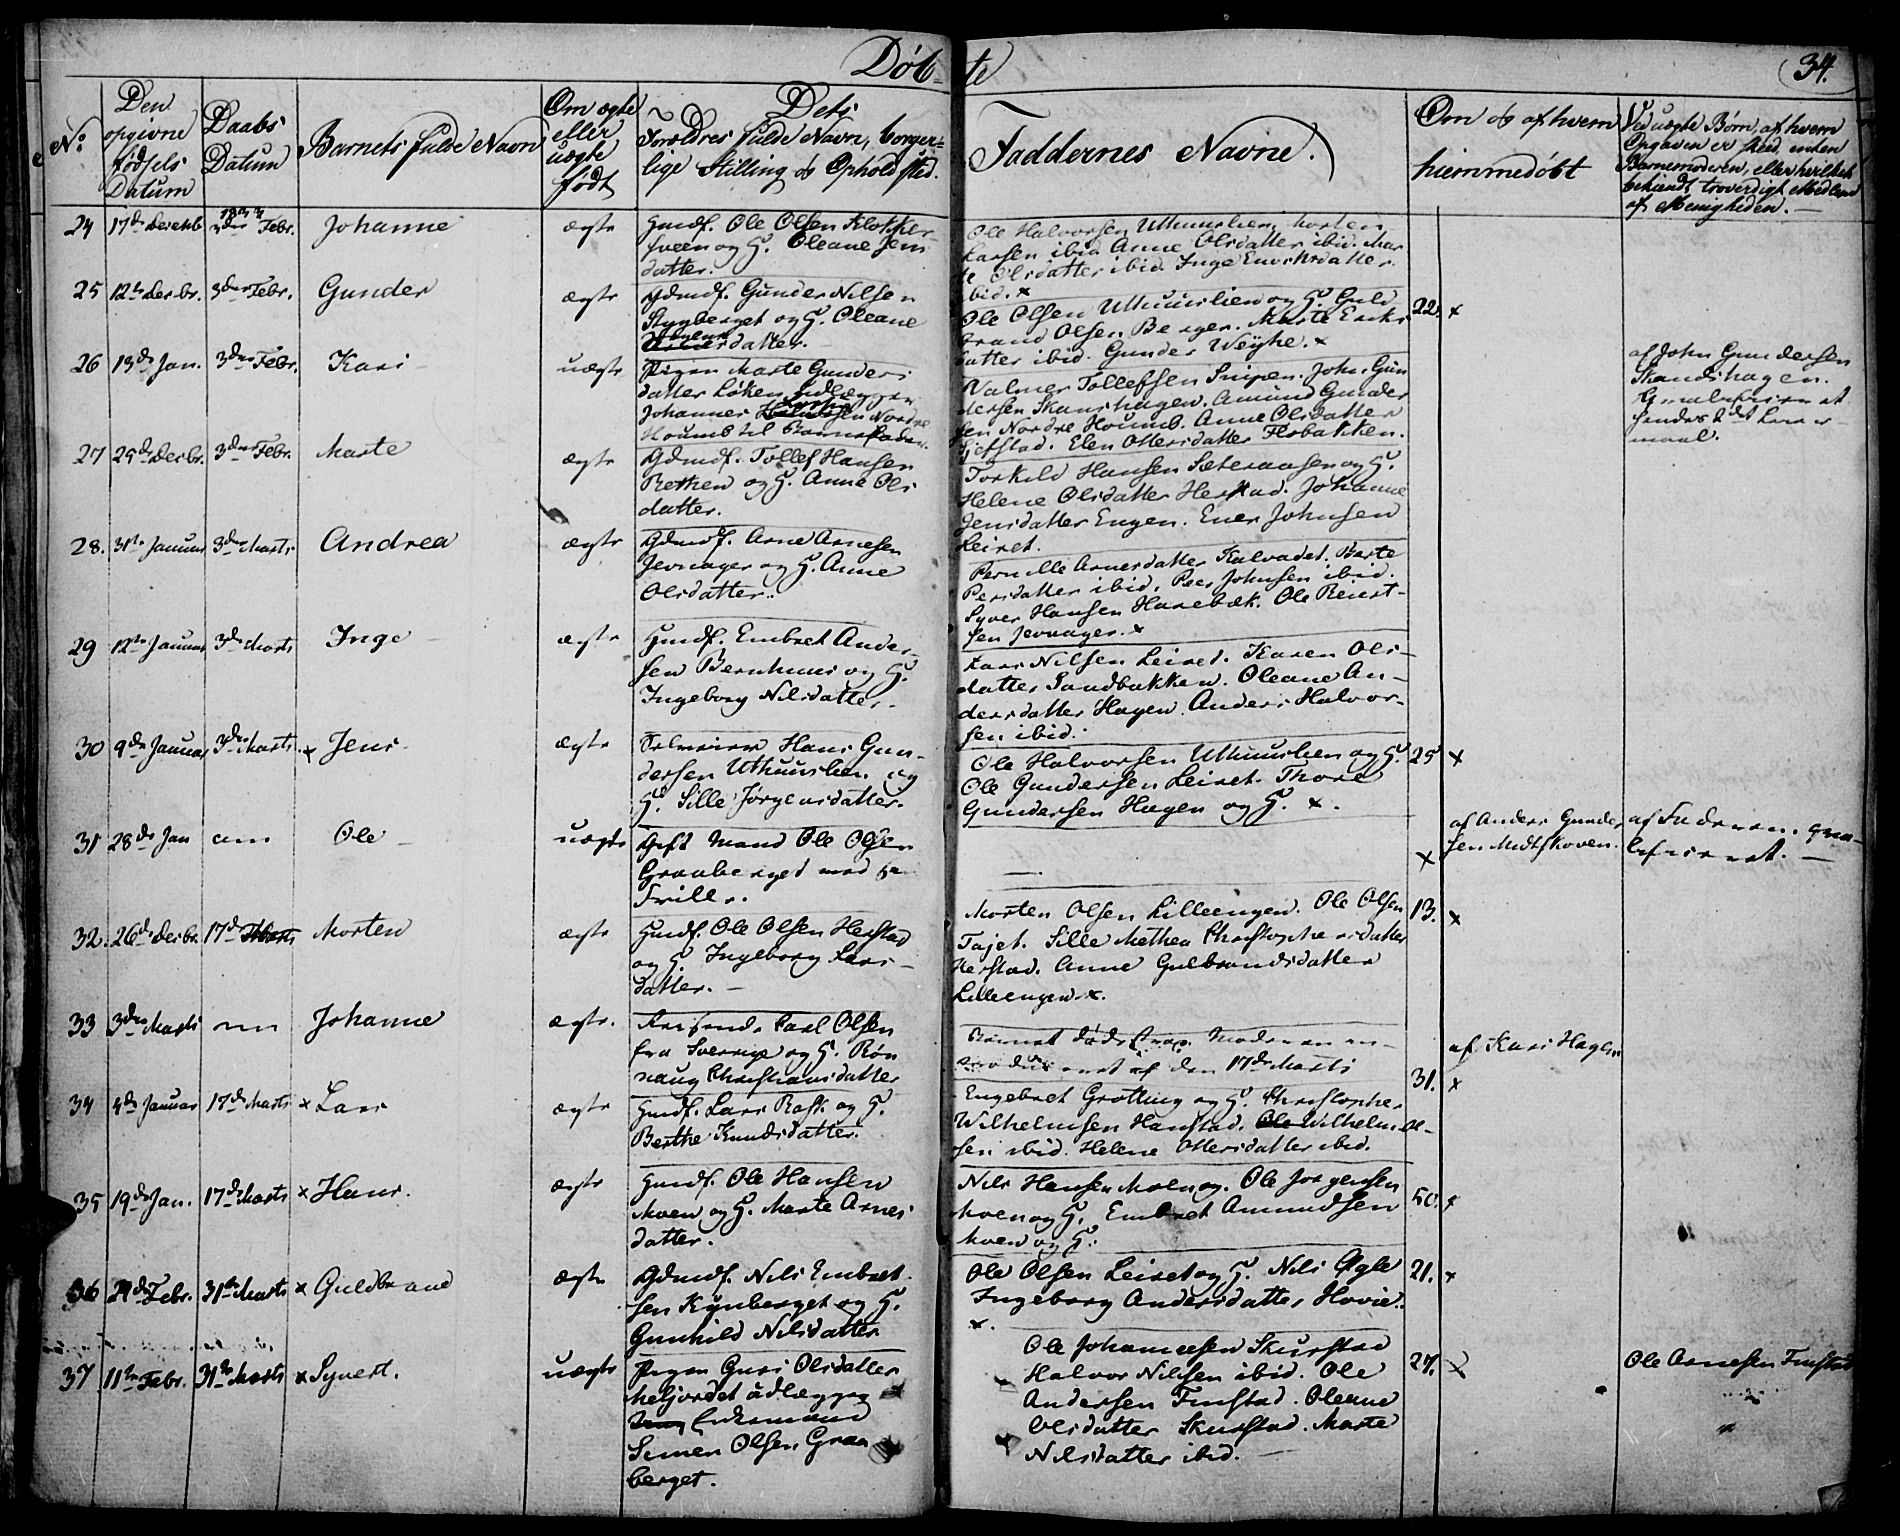 Døb-
te
34.
No.
Den opgivne fødsels Datum
Daabs Datum
Barnets fulde Navn
Om ægte eller uægte født
Dets Forældres fulde Navn, borger-
lige Stilling og Opholdsted.
Faddernes Navne.
Om og af hvem
hiemmedøbt
Ved uægte Børn, af hvem
Opgaven er skeed, enten
Barnemoderen, eller hvilket
bekiendt troværdigt Medlem
af Menigheden.
24 17de Decemb 3die Febr. Johanne ægte
Huusf. Ole Olsen Klokker-
sveen og H. Oleane Jens
datter.
Ole Halvorsen Uthuuslien, Morten
Larsen ibid. Anne Olsdatter ibid. Mar
te Olsdatter ibid. Inge
ibid. x
25 12te Decbr. 3die Febr. Gunder ægte
Gdmd. Gunder Nilsen
Stygberget og H. Oleane
datter.
Ole Olsen Uthuuslien og H. Guld
brand Olsen Berger. Marte Eriks
datter ibid. Gunder Weyhe. x
22. x
26 13de Jan. 3die Febr. Kari uægte
Pigen Marte Gunders
datter Løken udlægger
Johannes Nordre
Houmb til Barnefader.
Valmer Tollefsen Snipen. John Gun
dersen Skanshagen. Amund Gunder
sen Nordre Houmb. Anne Olsdatter
Gjetstad. Elen Ottersdatter Flobakken.
af John Gundersen
Skandshagen.
27 25de Decbr. 3die Febr. Marte ægte
Gdmd. Tollef Hansen
Retken og H. Anne Ols
datter.
Torkild Hansen Sæteraasen og H.
Helene Olsdatter Herstad. Johanne
Jensdatter Engen. Ener Johnsen
Leiret.
28. 31te Januar 3die Marts Andrea ægte
Gdmd. Arne Arnesen
Jevnager og H. Anne
Olsdatter.
Pernille Arnesdatter Kalvadet. Berte
Persdatter ibid. Peer Johnsen ibid.
Syver Hansen Harebæk. Ole Reiert-
sen Jevnager. x
29 12te Januar 3die Marts Inge ægte
Huusf. Embret Ander-
sen Bernhuus og H.
Ingeborg Nilsdatter.
Lars Nilsen Leiret. Karen Ols-
datter Sandbakken. Oleane An-
dersdatter Hagen. Anders Halvor-
sen ibid.
30 9de Januar 3die Marts x Jens ægte
Hans Gun-
dersen Uthuuslien og
H. Sille Jørgensdatter.
Ole Halvorsen Uthuuslien og H.
Ole Gundersen Leiret. Thore
Gundersen Hagen og H. x.
25 x
31 28de Jan Ole uægte
Gift Mand Ole Olsen
Graaberget med
Frille.
x
af Anders Gunder
sen Midtskoven.
af Faderen.
32. 26de Decbr. 17de Marts Morten ægte
Huusf. Ole Olsen Herstad
og H. Ingeborg Lars-
datter.
Morten Olsen Lilleengen. Ole Olsen
Tajet. Sille Mathea Christophersdatter
Herstad. Anne Gulbrandsdatter
Lilleengen x.
13. x
33 3die Marts Johanne ægte.
Carl Olsen
fra Sverrige og H. Røn
naug Christiansdatter
Barnet døde strax. Moderen
den 17de Marts
af Kari Hagen
34 4de Januar 17de Marts x Lars ægte
Huusf. Lars Rask og H.
Berthe Knudsdatter.
Engebret Grøtting og H. Christopher
Wilhelmsen Harstad. Ole Wilhelm
sen ibid. Helene Ottersdatter ibid.
31. x
35 19de Jan. 17de Marts x Hans. ægte
Huusf. Ole Hansen
Moen og H. Marte Arnes
datter.
Nils Hansen Moen og. Ole Jørgensen
Moen og H. Embret Amundsen
Moen og H.
50. x
36 24de Febr. 31te Marts x Guldbrand ægte
Gdmd. Nils Embret-
sen Kynberget og H.
Gunhild Nilsdatter
Ole Olsen Leiret og H. Nils Ogle
Ingeborg Andersdatter Hovie.
x.
21. x
37 11te Febr. 31te Marts x Syvert. uægte
Pigen Guri Olsdatter
udlægger
Enkemand
Simen Olsen Graa
berget.
Ole Johannesen Skurstad
Halvor Nilsen ibid. Ole
Andersen Finstad. Oleane
Olsdatter Skurstad. Marte
Nilsdatter ibid.
27. x
Ole Arnesen Finstad